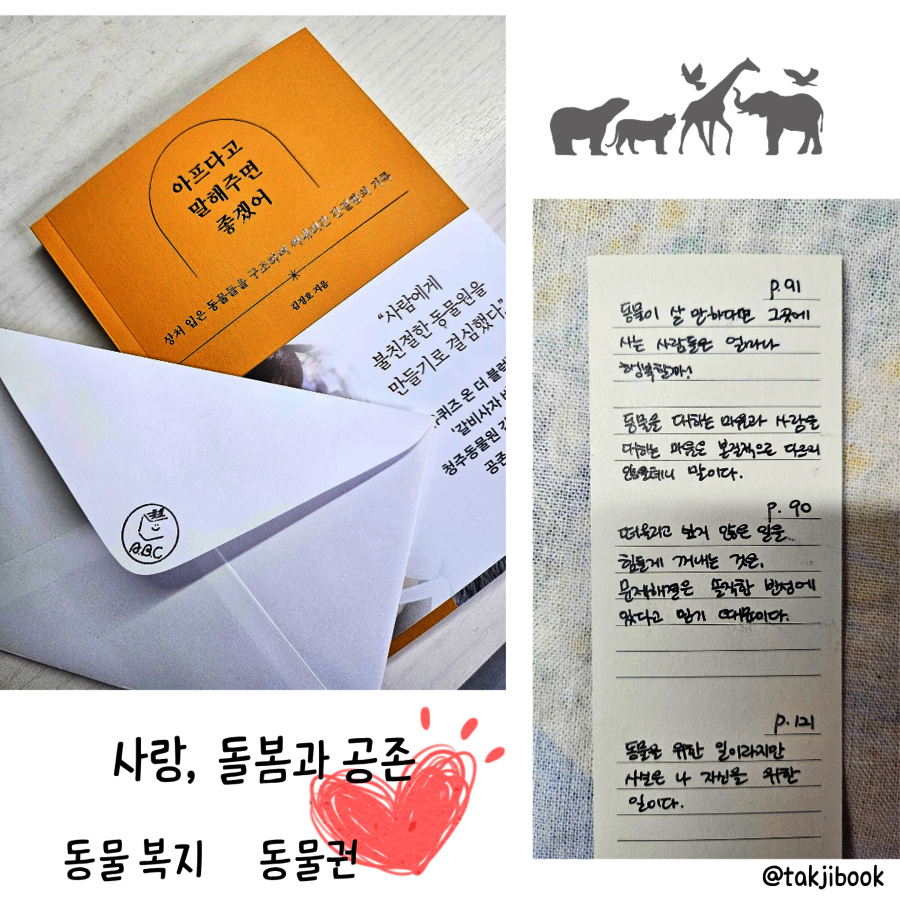 아프다고
말해주면
좋겠어
상처 입은 동물들을 구조하며 써내려간 간절함의 기록
김정호 지음
“사람에게
불친절한 동물원을
만들기로 결심했다.”
퀴즈 온 더 블럭
'갈비사자 바
청주동물원 김
공존
A.B.C
p.91
동물이 살 만하다면 그곳에
사는 사람들은 얼마나
행복할까!
동물을 대하는 마음과 사람을
대하는 마음은 본질적으로 다르지
않을테니 말이다.
p. 90
떠올리고 싶지 않은 일을
힘들게 꺼내는 것은,
문제해결은 솔직한 반성에
있다고 믿기 때문이다.
p.121
동물을 위한 일이라지만
사실은 나 자신을 위한
일이다.
사랑, 돌봄과 공존
동물 복지 동물권
@takjibook